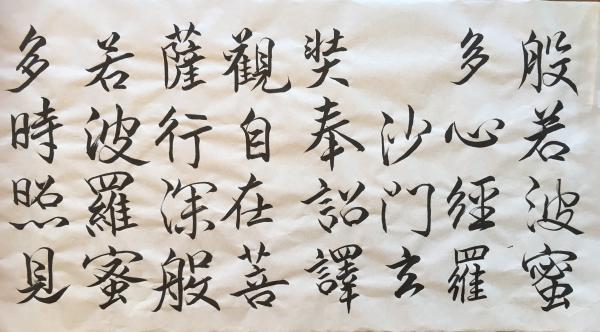 般若波蜜
多心經羅
沙門玄
奘奉詔譯
觀自在菩
薩行深般
若波羅蜜
多時照見